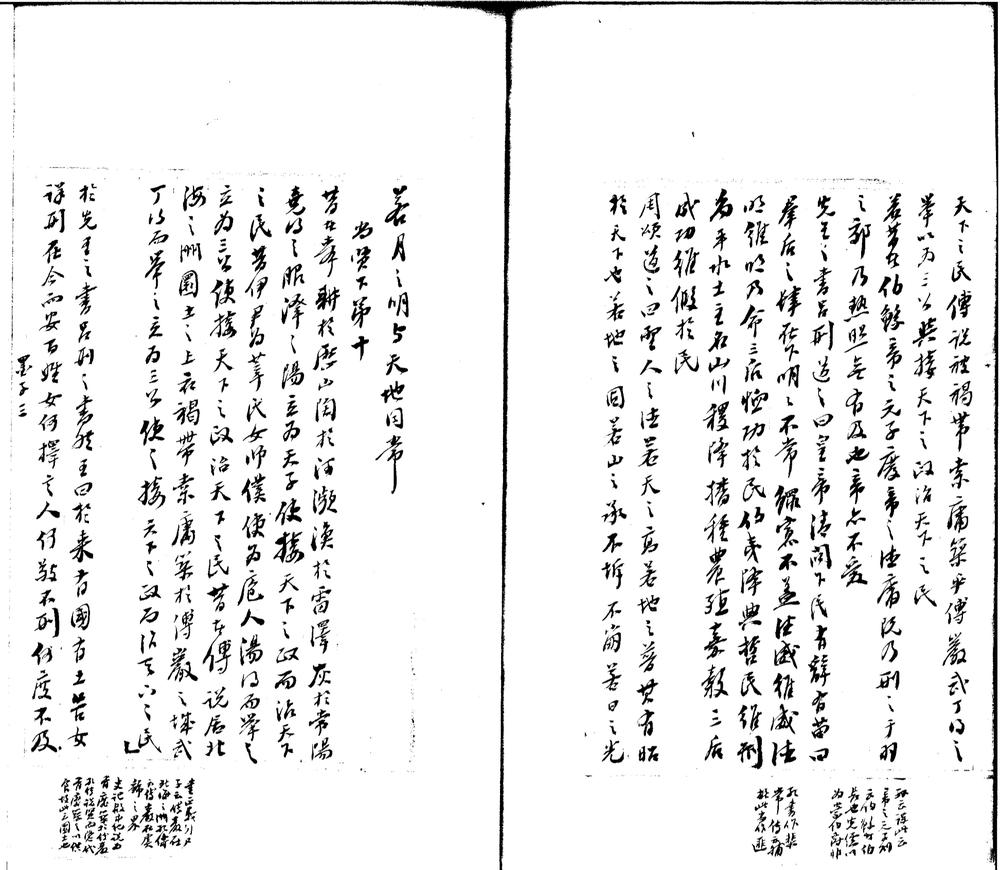 天下之民傅說被褐帶索庸築乎傅巖武丁得之
舉以為三公與接天下之政治天下之民
若昔者伯鯀帝之元子廢帝之德庸既乃刑之于羽
之郊乃熱照無有及也帝亦不愛
先王之書呂刑道之曰皇帝清問下民有辭有苗曰
羣后之肆在下明明不常鰥寡不蓋德威維威德
明維明乃命三后恤功於民伯夷降典哲民維刑
禹平水土主名山川稷降播種農殖嘉穀三后
成功維假於民
周頌道之曰聖人之德若天之高若地之普其有昭
於天下也若地之固若山之承不坼不崩若日之光
若月之明與天地同常
尚賢下第十
昔者舜耕於歷山陶於河瀕漁於雷澤灰於常陽
堯得之服澤之陽立為天子使接天下之政而治天下
之民昔伊尹為莘氏女師僕使為庖人湯得而舉之
立為三公使接天下之政治天下之民昔者傅說居北
海之洲圜土之上衣褐帶索庸築於傅巖之城武
丁得而舉之立為三公使之接天下之政而治天下之民
於先王之書呂刑之書然王曰於來有國有土告女
訟刑在今而安百姓女何擇言人何敬不刑何度不及
墨子三